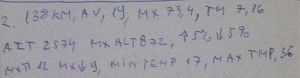 2. 138KM, AV, 19, MX 73,4, TM 7,16
AET 2574 MXALT 872, ↑5% ↓5%
MXTI 12 MX↓9, MINTEMP 17, MAX TMP, 36